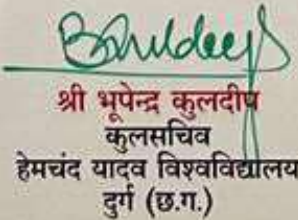 श्री भूपेन्द्र कुलदीप
कुलसचिव
हेमचंद यादव विश्वविद्यालय
दुर्ग (छ.ग.)